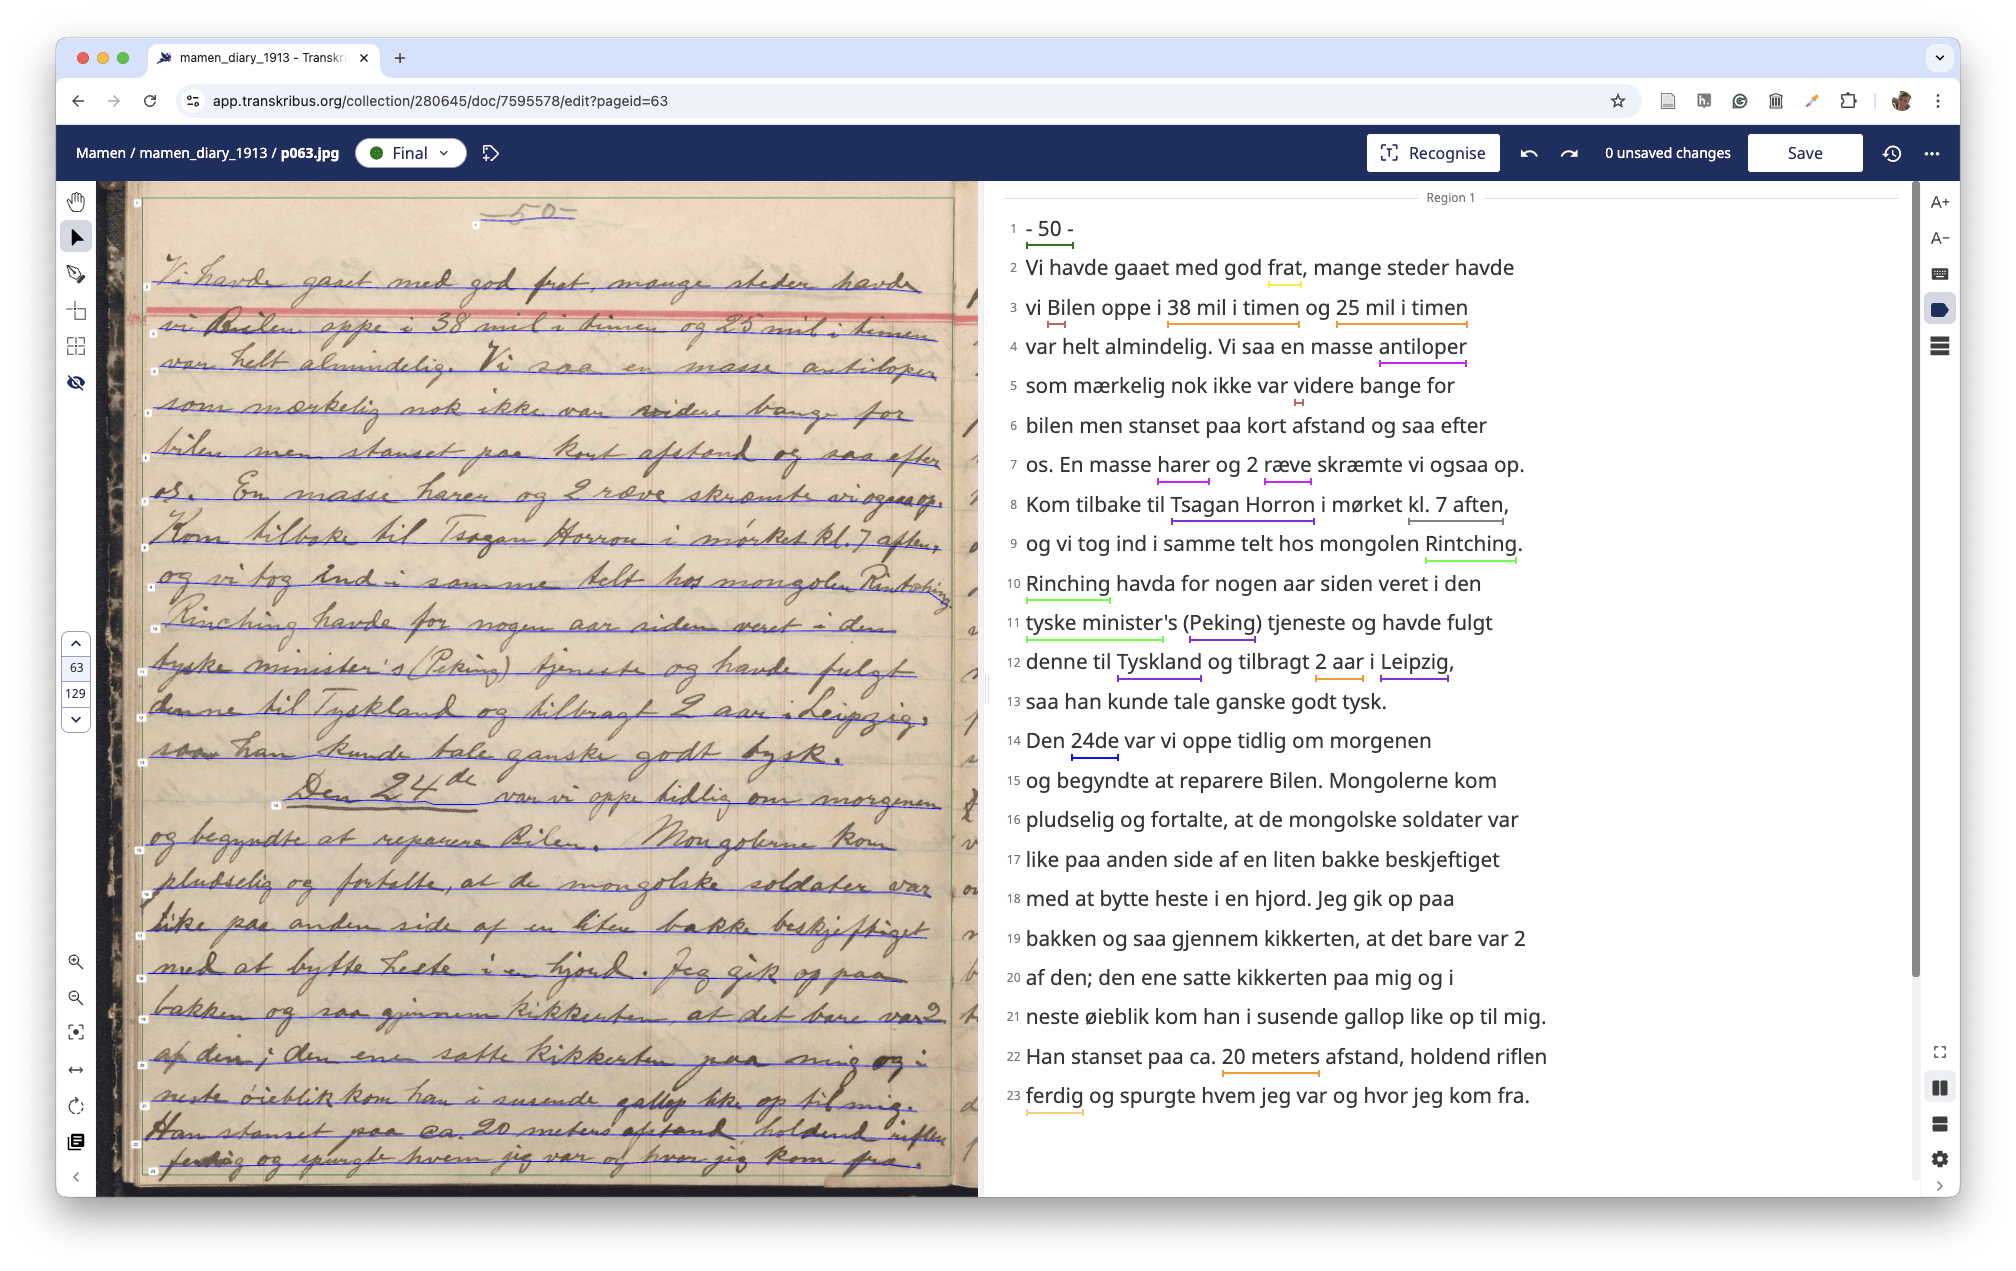 mamen_diary_1913 - Transkri
app.transkribus.org/collection/280645/doc/7595578/edit?pageid=63
Mamen / mamen_diary_1913 / p063.jpg
Final
Recognise
0 unsaved changes
Save
63
129
- 50 -
Vi havde gaaet med god frat, mange steder havde
vi Bilen oppe i 38 mil i timen og 25 mil i timen
var helt almindelig. Vi saa en masse antiloper
som mærkelig nok ikke var videre bange for
bilen men stanset paa kort afstand og saa efter
os. En masse harer og 2 ræve skræmte vi ogsaa op.
Kom tilbake til Tsagan Horron i mørket kl. 7 aften,
og vi tog ind i samme telt hos mongolen Rintching
Rinching havde for nogen aar siden veret i den
tyske minister's (Peking) tjeneste og havde fulgt
denne til Tyskland og tilbragt 2 aar i Leipzig,
saa han kunde tale ganske godt tysk.
Den 24de var vi oppe tidlig om morgenen
og begyndte at reparere Bilen. Mongolerne kom
pludselig og fortalte, at de mongolske soldater var
like paa anden side af en liten bakke beskjeftiget
med at bytte heste i en hjord. Jeg gik op paa
bakken og saa gjennem kikkerten, at det bare var 2
af den; den ene satte kikkerten paa mig og i
neste øieblik kom han i susende gallop like op til mig.
Han stanset paa ca. 20 meters afstand, holdend riflen
ferdig og spurgte hvem jeg var og hvor jeg kom fra.
Region 1
1 - 50 -
2 Vi havde gaaet med god frat, mange steder havde
3 vi Bilen oppe i 38 mil i timen og 25 mil i timen
4 var helt almindelig. Vi saa en masse antiloper
5 som mærkelig nok ikke var videre bange for
6 bilen men stanset paa kort afstand og saa efter
7 os. En masse harer og 2 ræve skræmte vi ogsaa op.
8 Kom tilbake til Tsagan Horron i mørket kl. 7 aften,
9 og vi tog ind i samme telt hos mongolen Rintching.
10 Rinching havda for nogen aar siden veret i den
11 tyske minister's (Peking) tjeneste og havde fulgt
12 denne til Tyskland og tilbragt 2 aar i Leipzig,
13 saa han kunde tale ganske godt tysk.
14 Den 24de var vi oppe tidlig om morgenen
15 og begyndte at reparere Bilen. Mongolerne kom
16 pludselig og fortalte, at de mongolske soldater var
17 like paa anden side af en liten bakke beskjeftiget
18 med at bytte heste i en hjord. Jeg gik op paa
19 bakken og saa gjennem kikkerten, at det bare var 2
20 af den; den ene satte kikkerten paa mig og i
21 neste øieblik kom han i susende gallop like op til mig.
22 Han stanset paa ca. 20 meters afstand, holdend riflen
23 ferdig og spurgte hvem jeg var og hvor jeg kom fra.
A+
A-